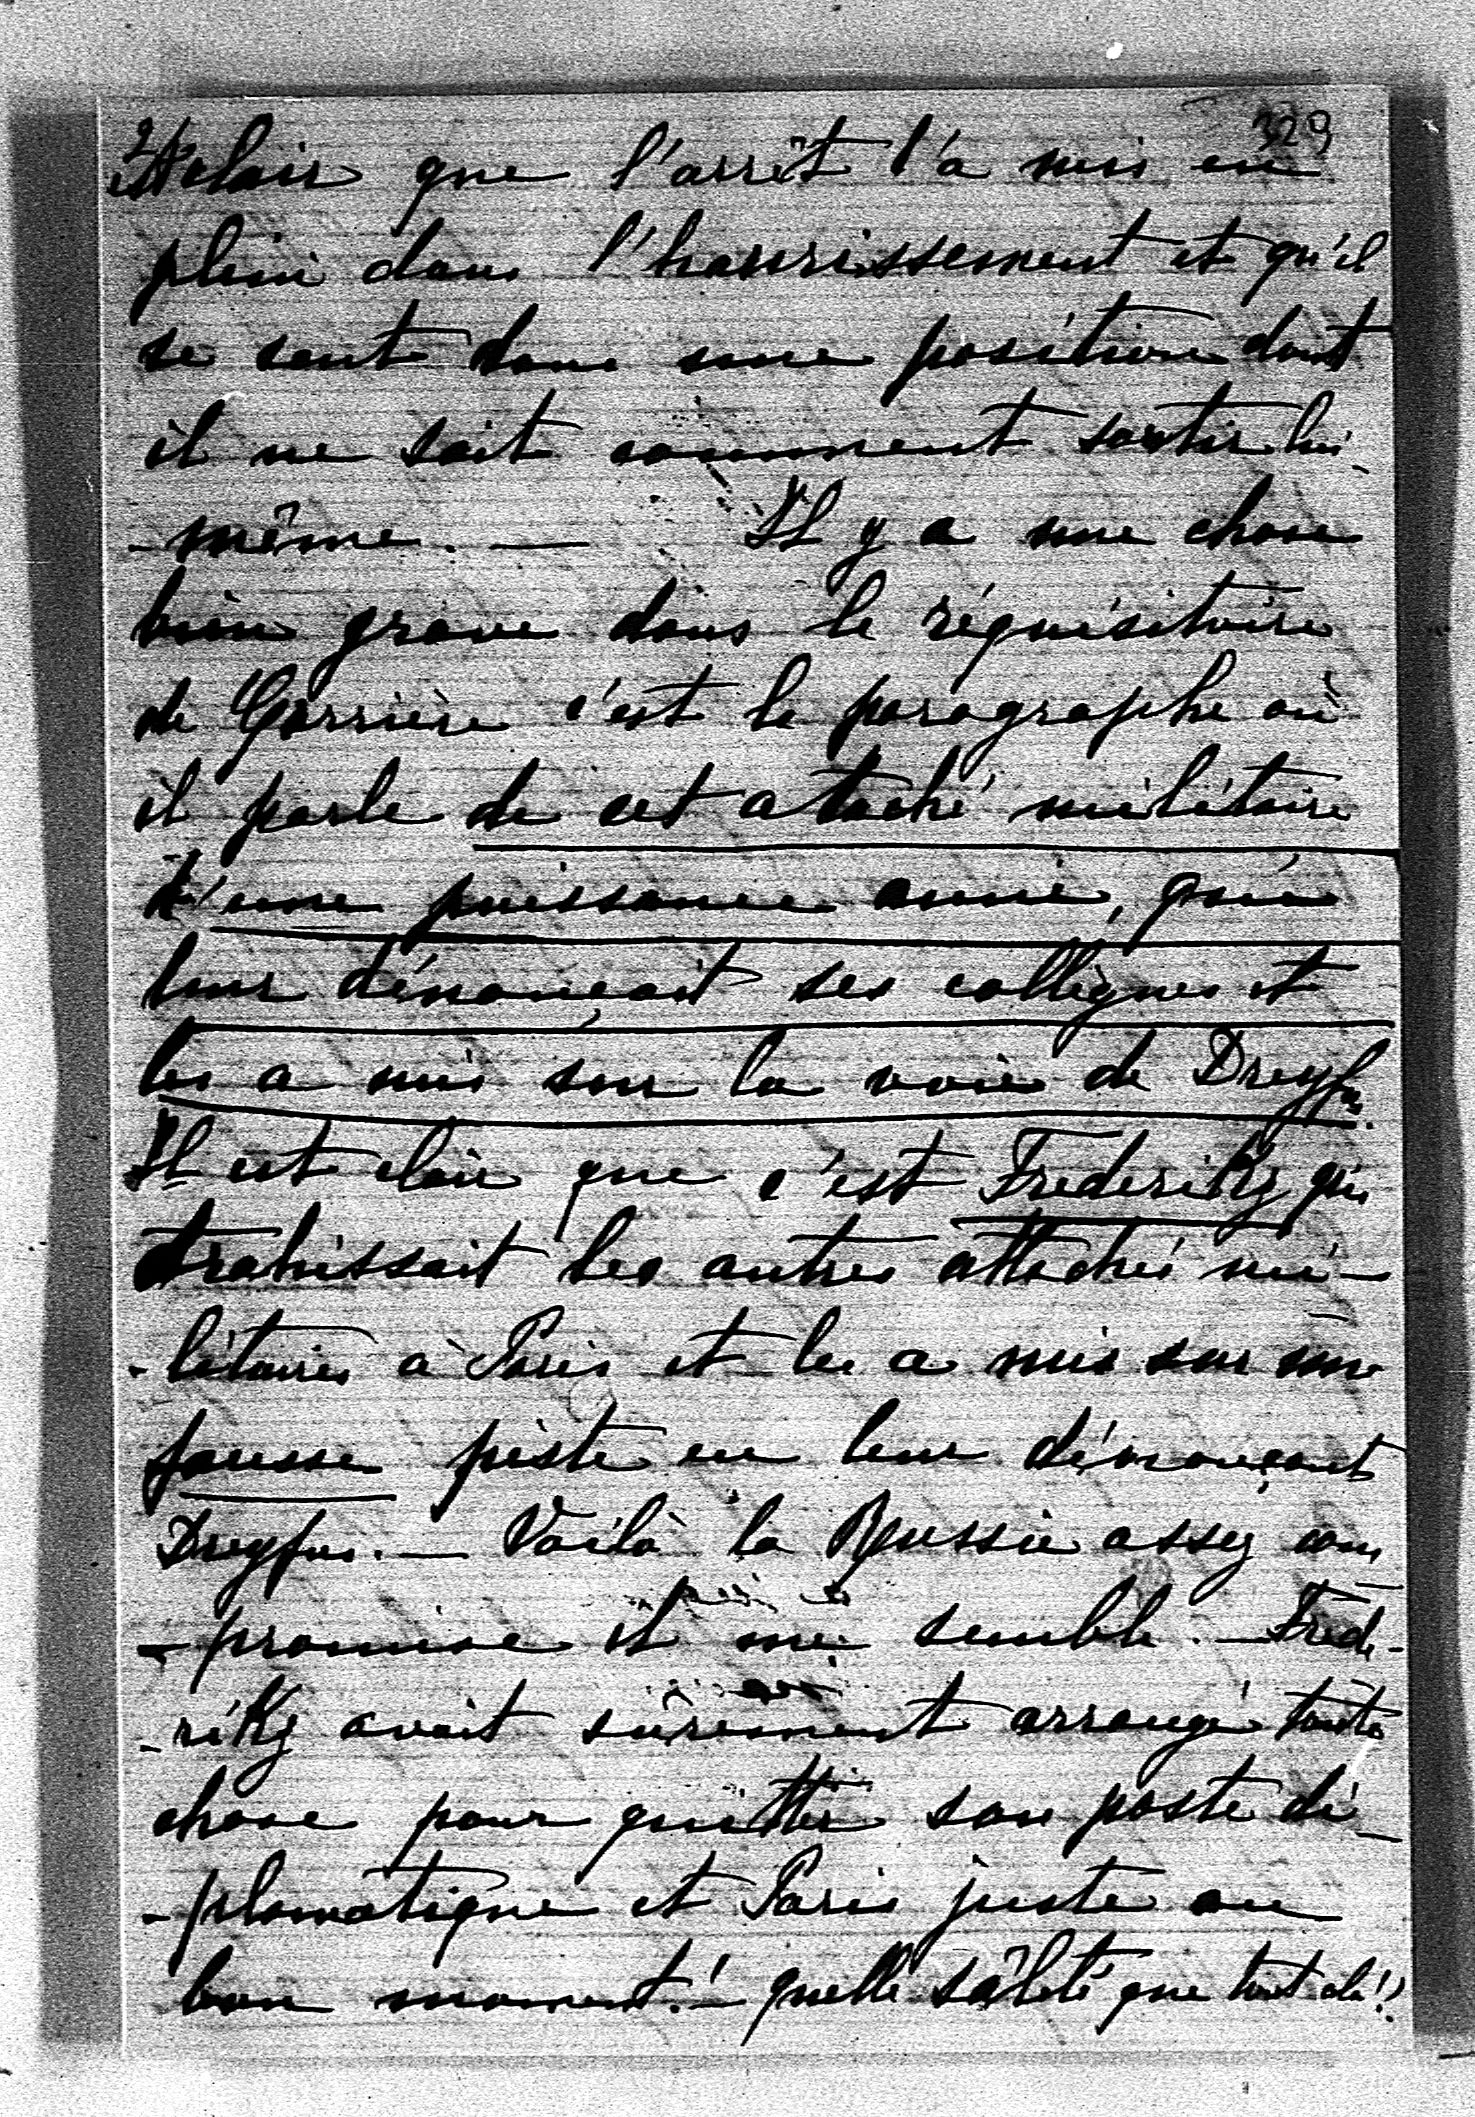 329
2
est clair que l'arrêt l'a mis en
plein dans l'hourissement et qu'il
se sent dans une position dont
il ne sait comment sortir lui
- même. — Il y a une chose
bien grave dans le réquisitoire
de Carrière c'est le paragraphe où
il parle de cet attaché militaire
d'une puissance amie, qui
leur dénonçait ses collègues et
les a mis sur la voie de Dreyfus.
Il est clair que c'est Frederikz qui
trahissait les autres attachés mi-
- litaires à Paris et les a mis sur une
fausse piste en leur dénonçant
Dreyfus. — Voilà la Russie assez com
- promise il me semble. — Fréde-
- rikz avait sûrement arrangé toute
chose pour quitter son poste di-
- plomatique et Paris juste au
bon moment! — quelle sâleté que tout cela!?